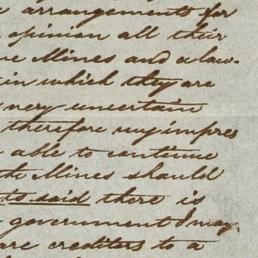 arrangements for
opinion all their
Mines and a law-
in which they are
very uncertain
therefore my impres
able to continue
the Mines should
its said there is
government I may
are creditors to a